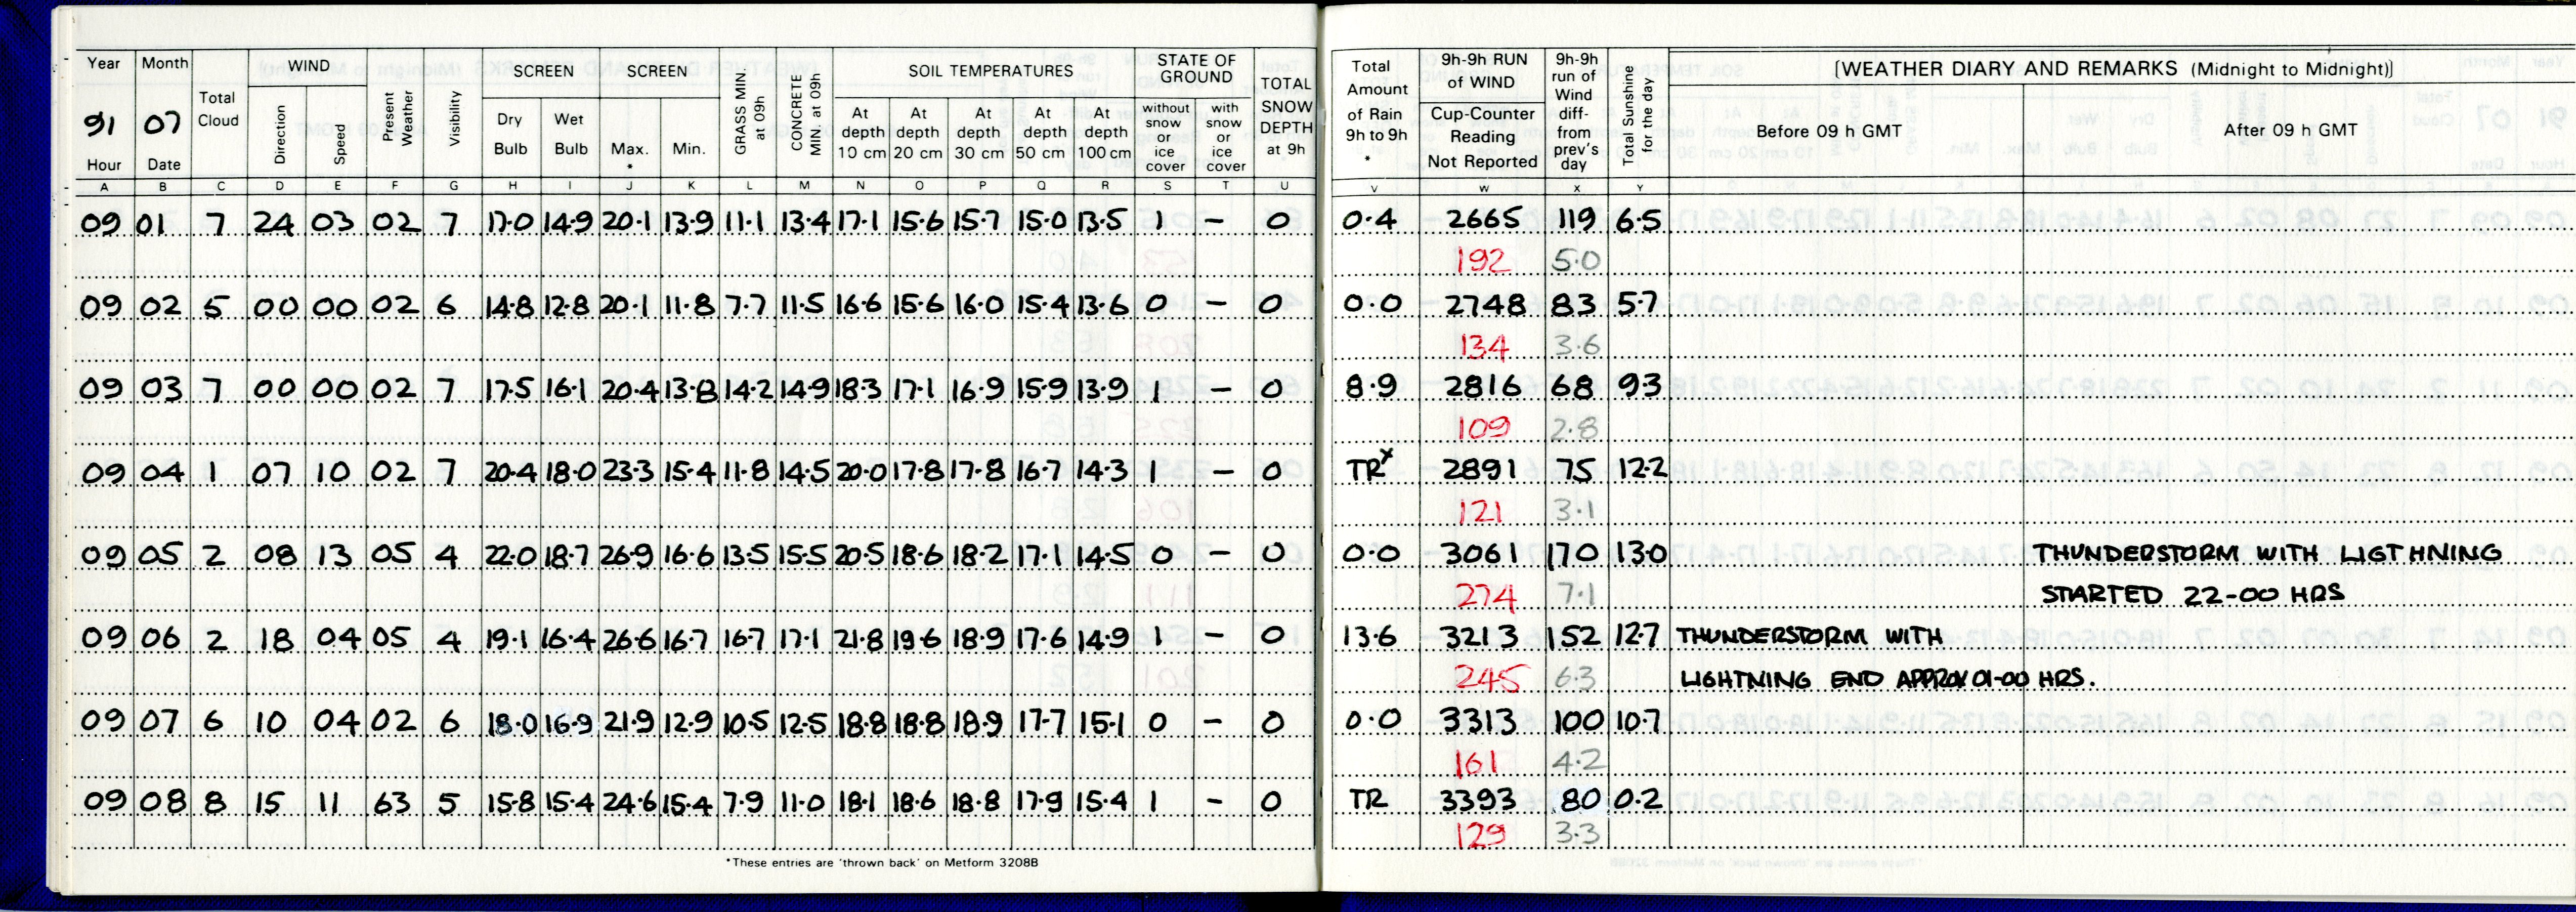 Year Month WIND SCREEN SCREEN SOIL TEMPERATURES STATE OF GROUND TOTAL SNOW DEPTH at 9h Total Amount of Rain 9h to 9h * 9h-9h RUN of WIND 9h-9h run of Wind diff- from prev's day Total Sunshine for the day [WEATHER DIARY AND REMARKS (Midnight to Midnight)]
91 07 Total Cloud Direction Speed Present Weather Visibility Dry Bulb Wet Bulb Max. * Min. GRASS MIN. at 09h CONCRETE MIN. at 09h At depth 10 cm At depth 20 cm At depth 30 cm At depth 50 cm At depth 100 cm without snow or ice cover with snow or ice cover Cup-Counter Reading Not Reported Before 09 h GMT After 09 h GMT
Hour Date
A B C D E F G H I J K L M N O P Q R S T U V W X Y
09 01 7 24 03 02 7 17.0 14.9 20.1 13.9 11.1 13.4 17.1 15.6 15.7 15.0 13.5 1 – 0 0.4 2665 119 6.5
192 5.0
09 02 5 00 00 02 6 14.8 12.8 20.1 11.8 7.7 11.5 16.6 15.6 16.0 15.4 13.6 0 – 0 0.0 2748 83 5.7
134 3.6
09 03 7 00 00 02 7 17.5 16.1 20.4 13.8 14.2 14.9 18.3 17.1 16.9 15.9 13.9 1 – 0 8.9 2816 68 93
109 2.8
09 04 1 07 10 02 7 20.4 18.0 23.3 15.4 11.8 14.5 20.0 17.8 17.8 16.7 14.3 1 – 0 TRx 2891 75 12.2
121 3.1
09 05 2 08 13 05 4 22.0 18.7 26.9 16.6 13.5 15.5 20.5 18.6 18.2 17.1 14.5 0 – 0 0.0 3061 170 13.0 THUNDERSTORM WITH LIGTHNING
274 7.1 STARTED 22-00 HRS
09 06 2 18 04 05 4 19.1 16.4 26.6 16.7 16.7 17.1 21.8 19.6 18.9 17.6 14.9 1 – 0 13.6 3213 152 12.7 THUNDERSTORM WITH
245 6.3 LIGHTNING END APPROX 01-00 HRS.
09 07 6 10 04 02 6 18.0 16.9 21.9 12.9 10.5 12.5 18.8 18.8 18.9 17.7 15.1 0 – 0 0.0 3313 100 10.7
161 4.2
09 08 8 15 11 63 5 15.8 15.4 24.6 15.4 7.9 11.0 18.1 18.6 18.8 17.9 15.4 1 – 0 TR 3393 80 0.2
129 3.3
*These entries are 'thrown back' on Metform 3208B